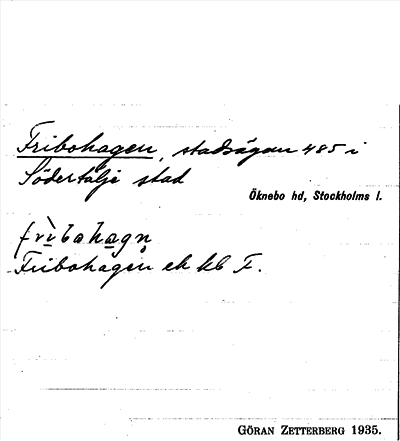 Fribohagen, stadsägan 485 i
Södertälje stad
Öknebo hd, Stockholms l.
frìbahagn̥
Fribohagen ek kb F.
GÖRAN ZETTERBERG 1935.